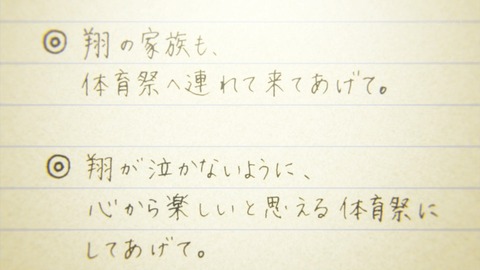 ◎ 翔の家族も、
体育祭へ連れて来てあげて。
◎ 翔が泣かないように、
心から楽しいと思える体育祭に
してあげて。